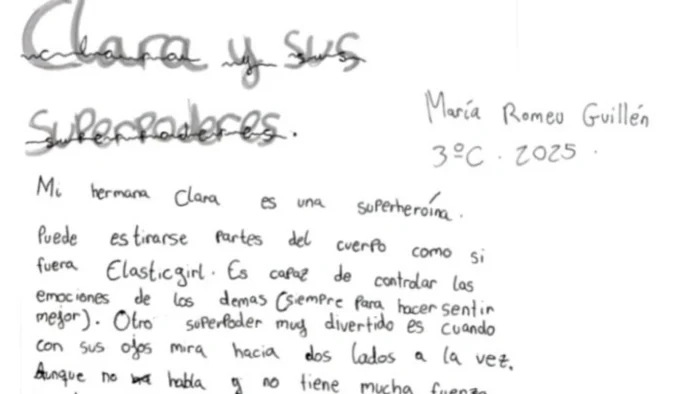 Clara y sus
superpoderes.
María Romeu Guillén
3ºC. 2025.
Mi hermana Clara es una superheroína.
Puede estirarse partes del cuerpo como si
fuera Elasticgirl. Es capaz de controlar las
emociones de los demas (siempre para hacer sentir
mejor). Otro superpoder muy divertido es cuando
con sus ojos mira hacia dos lados a la vez.
Aunque no habla y no tiene mucha fuerza